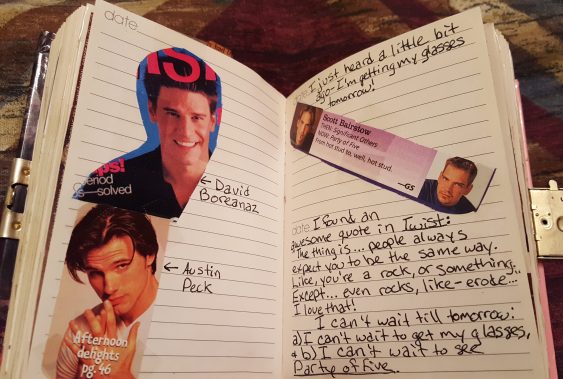 date
IS
ps!
eriod
s—solved
← David
Boreanaz
← Austin
Peck
afternoon
delights
pg. 46
I just heard a little bit
ago-I'm getting my glasses
tomorrow!
Scott Bairstow
THEN: Significant Others
NOW: Party of Five
From hot stud to, well, hot stud.
—GS
date I found an
awesome quote in Twist:
The thing is... people always
expect you to be the same way.
Like, you're a rock, or something.
Except... even rocks, like-erode...
I love that!
I can't wait till tomorrow:
a) I can't wait to get my glasses,
& b) I can't wait to see
Party of Five.